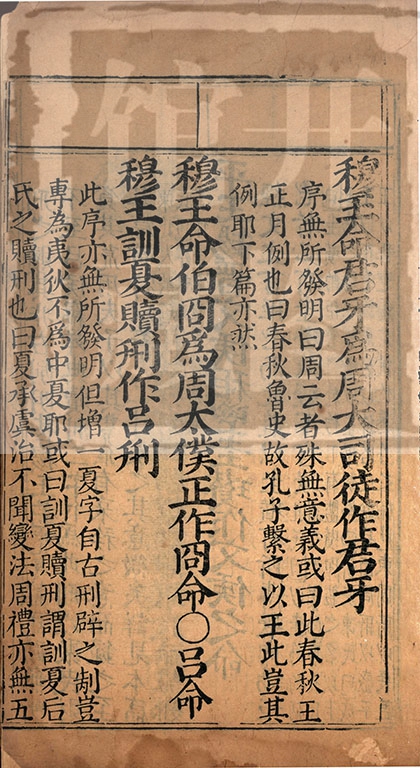 穆王命君牙爲周大司徒作君牙
序無所發明曰周云者殊無意義或曰此春秋王
正月例也曰春秋魯史故孔子繫之以王此豈其
例耶下篇亦然
穆王命伯冏爲周太僕正作冏命○呂命
穆王訓夏贖刑作呂刑
此序亦無所發明但增一夏字自古刑辟之制豈
專為夷狄不爲中夏耶或曰訓夏贖刑謂訓夏后
氏之贖刑也曰夏承虞治不聞變法周禮亦無五